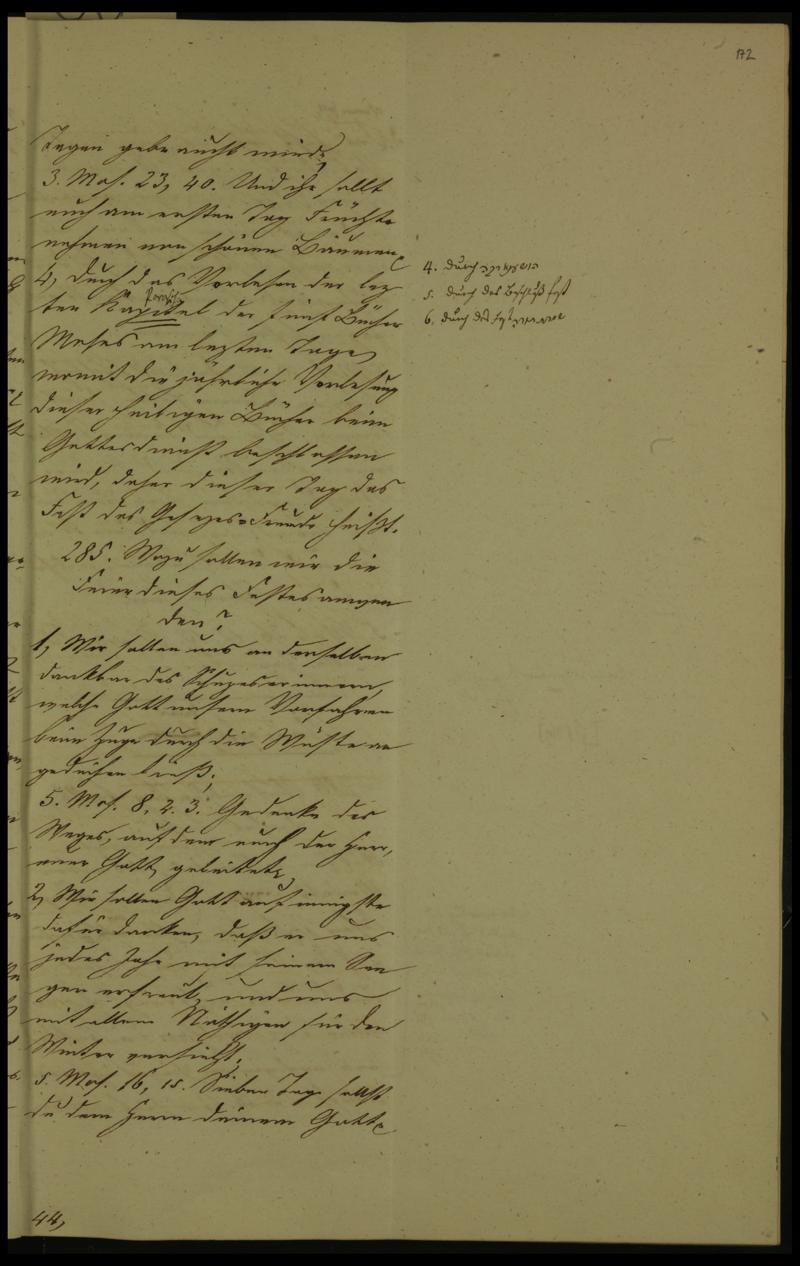 172
Tagen gebraucht wird;
3. Mos. 23, 40. Und ihr sollt
euch am ersten Tag Früchte
nehmen von schönen Bäumen.
4, durch das Vorlesen der lez-
Parascha
ten Kapitel der fünf Bücher
Moses am lezten Tage,
womit die jährliche Vorlesung
dieser heiligen Bücher beim
Gottesdienst beschlossen
wird, daher dieser Tag das
Fest der Gesezes-Freude heißt.
285. Wozu sollen wir die
Feier dieses Festes anwen
den?
1, Wir sollen uns an demselben
dankbar des Schuzes erinnern,
welche Gott unsern Vorfahren
beim Zuge durch die Wüste an
gedeihen ließ;
5. Mos. 8, 2. 3. Gedenke des
Weges, auf dem euch der Herr,
euer Gott, geleitet;
2, Wir sollen Gott auf innigste
dafür danken, daß er uns
jedes Jahr mit seinem See
gen erfreut, und uns
mit allem Nöthigen für den
Winter versieht;
5. Mos. 16, 15. Sieben Tage sollst
du dem Herrn deinem Gotte
44,
4. durch
5. durch das Beschluß fest
6. durch das Fest